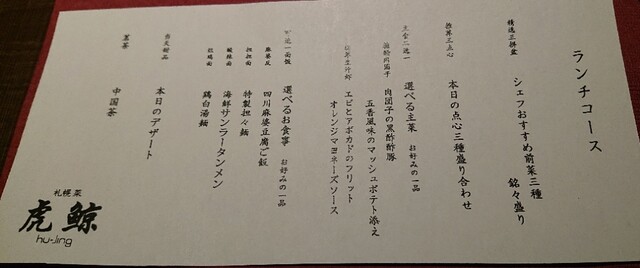 ランチコース
精选三拼盆
シェフおすすめ前菜三種
銘々盛り
推荐三点心
本日の点心三種盛り合わせ
主食二选一
選べる主菜 お好みの一品
肉団子の黒酢酢豚
五香風味のマッシュポテト添え
エビとアボカドのフリット
オレンジマヨネーズソース
选一面饭
選べるお食事 お好みの一品
麻婆饭
四川麻婆豆腐ご飯
担担面
特製担々麺
酸辣面
海鮮サンラータンメン
鶏白湯麺
当天甜品
本日のデザート
中国茶
札幌菜
虎鯨
hu-Jing